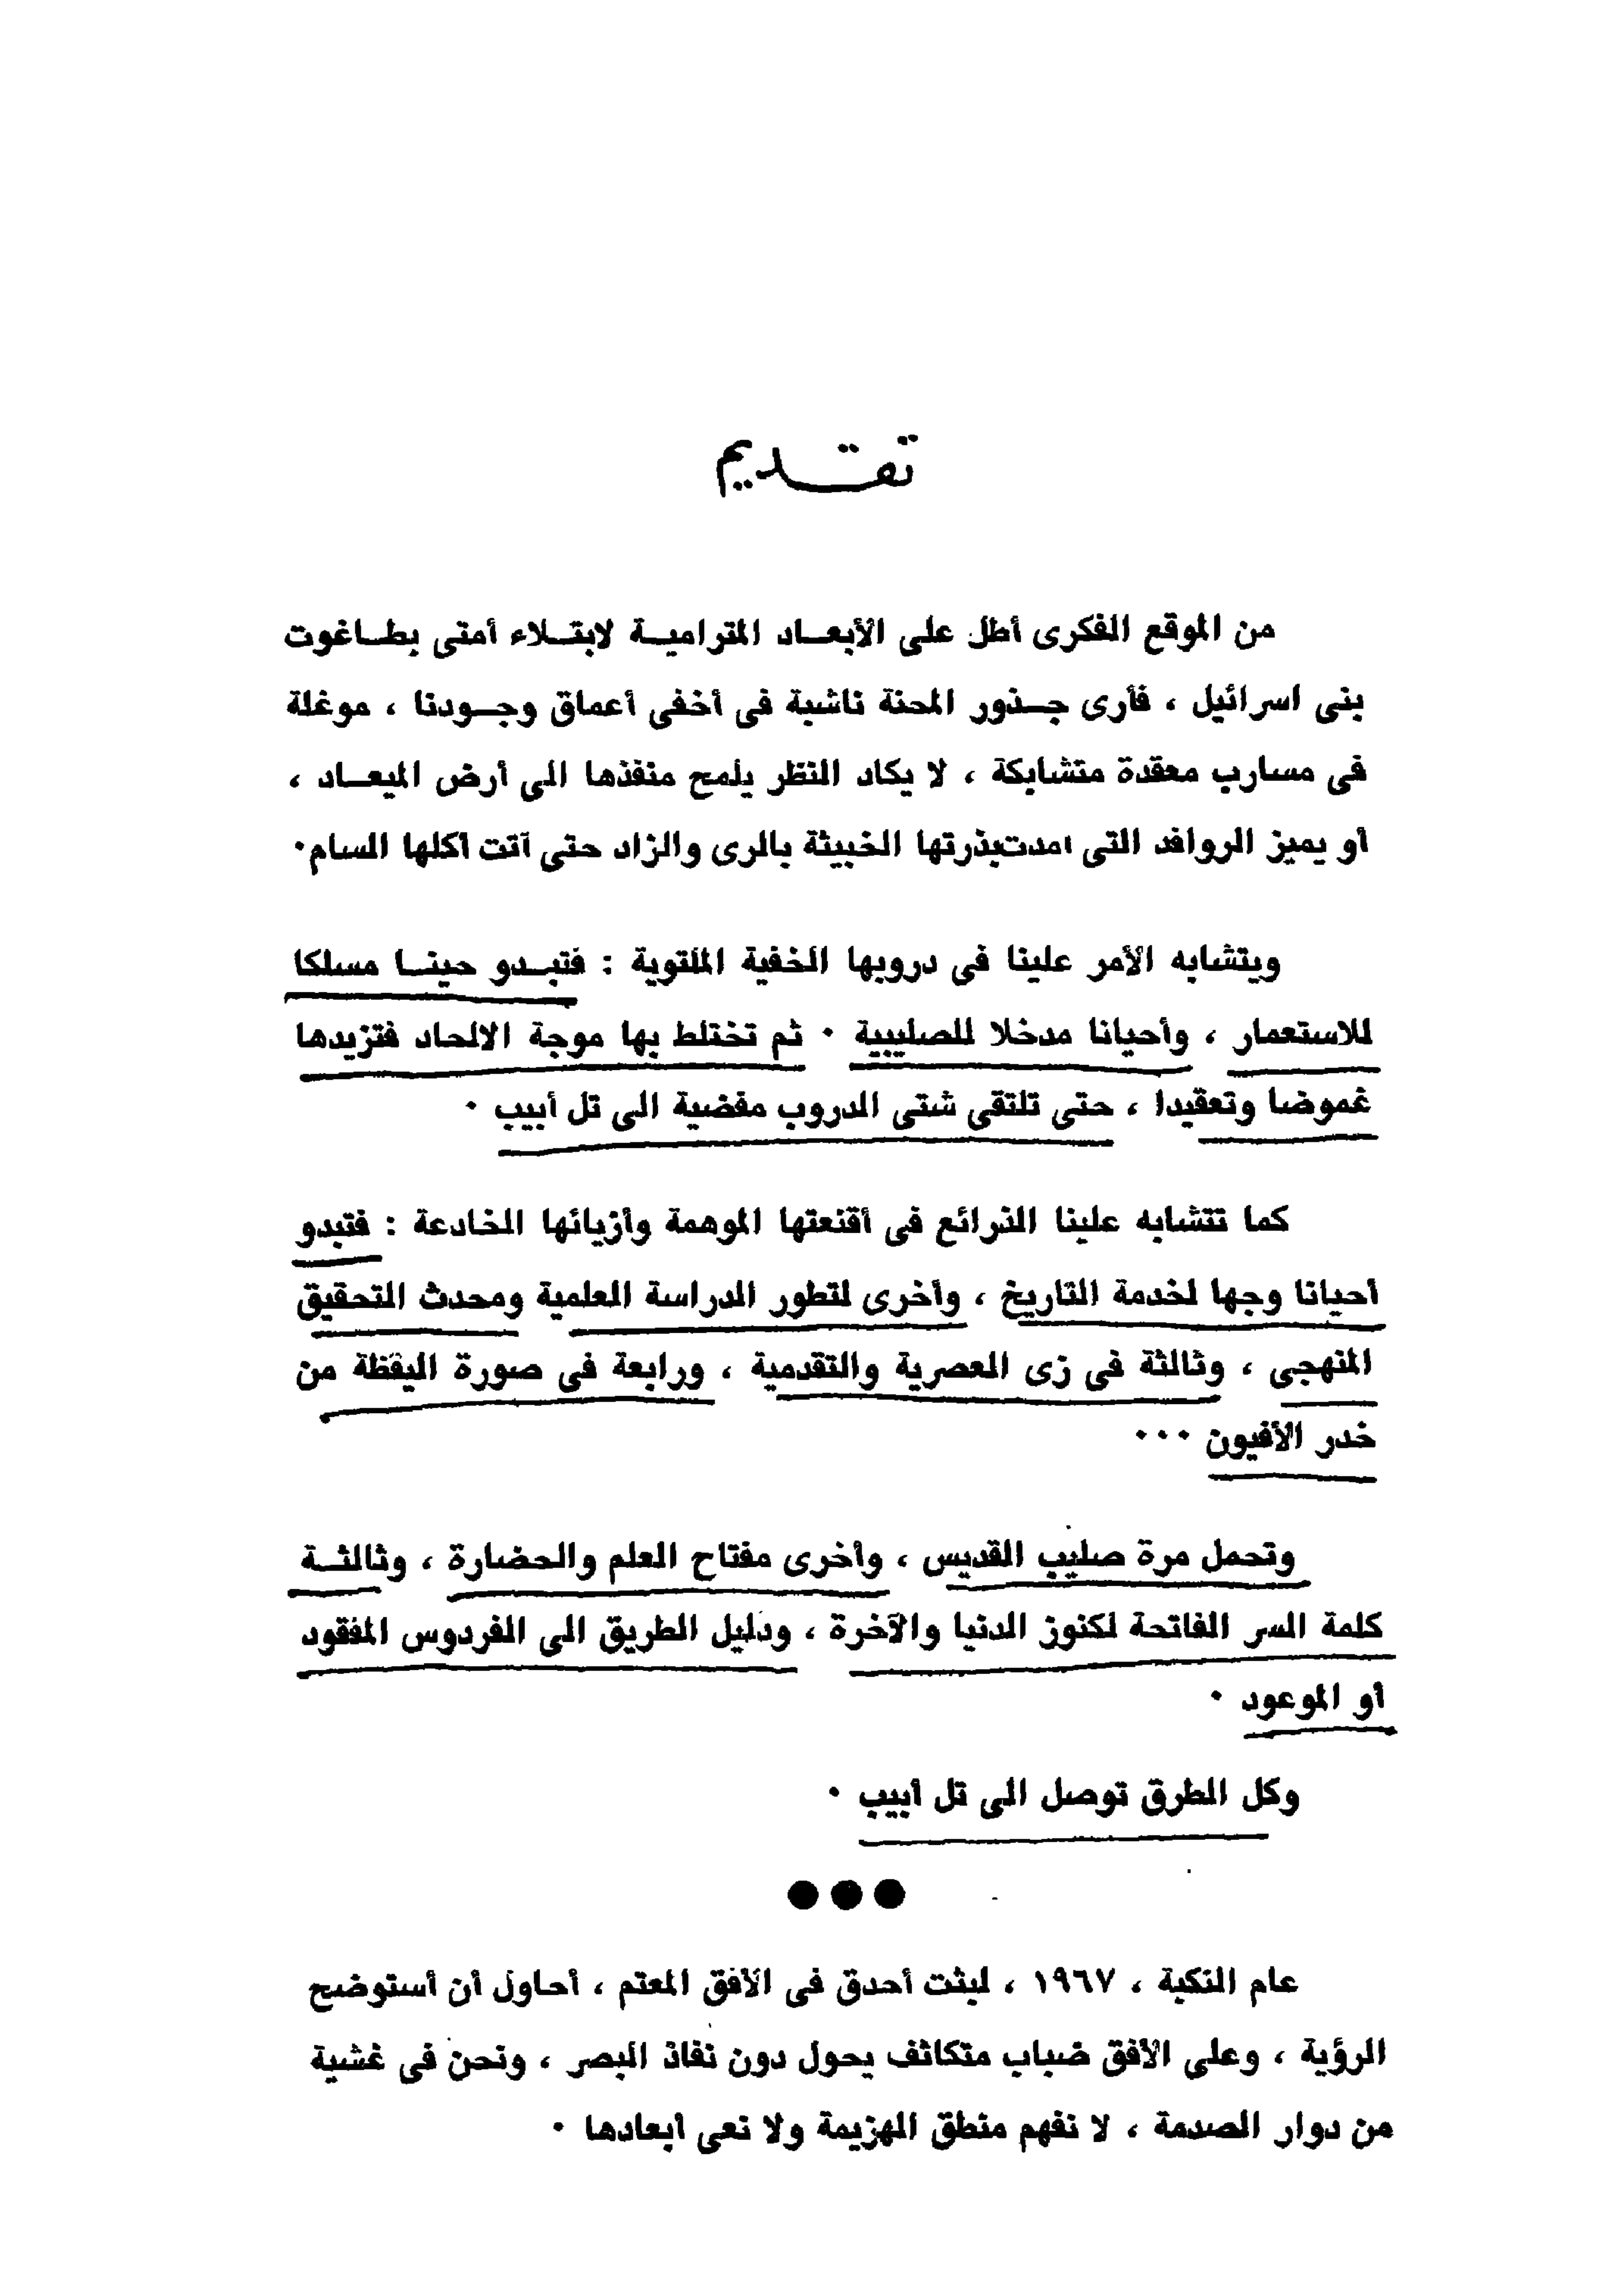 تقديم
من الموقع الفكرى أطل على الأبعاد المترامية لابتلاء أمتى بطاغوت
بنى اسرائيل ، فأرى جذور المحنة ناشبة فى أخفى أعماق وجودنا ، موغلة
فى مسارب معقدة متشابكة ، لا يكاد النظر يلمح منفذها الى أرض الميعاد ،
أو يميز الروافد التى امدت بذرتها الخبيثة بالرى والزاد حتى آتت أكلها السام ٠
ويتشابه الأمر علينا فى دروبها الخفية الملتوية : فتبدو حينا مسلكا
للاستعمار ، وأحيانا مدخلا للصليبية ٠ ثم تختلط بها موجة الالحاد فتزيدها
غموضا وتعقيدا ، حتى تلتقى شتى الدروب مفضية الى تل أبيب ٠
كما تتشابه علينا الذرائع فى أقنعتها الموهمة وأزيائها الخادعة : فتبدو
أحيانا وجها لخدمة التاريخ ، وأخرى لتطور الدراسة العلمية ومحدث التحقيق
المنهجى ، وثالثة فى زى العصرية والتقدمية ، ورابعة فى صورة اليقظة من
خدر الأفيون ٠٠٠
وتحمل مرة صليب القديس ، وأخرى مفتاح العلم والحضارة ، وثالثة
كلمة السر الفاتحة لكنوز الدنيا والآخرة ، ودليل الطريق الى الفردوس المفقود
أو الموعود ٠
وكل الطرق توصل الى تل أبيب ٠
●●●
عام النكبة ، ١٩٦٧ ، لبثت أحدق فى الأفق المعتم ، أحاول أن أستوضح
الرؤية ، وعلى الأفق ضباب متكاثف يحول دون نفاذ البصر ، ونحن فى غشية
من دوار الصدمة ، لا نفهم منطق الهزيمة ولا نعى ابعادها ٠